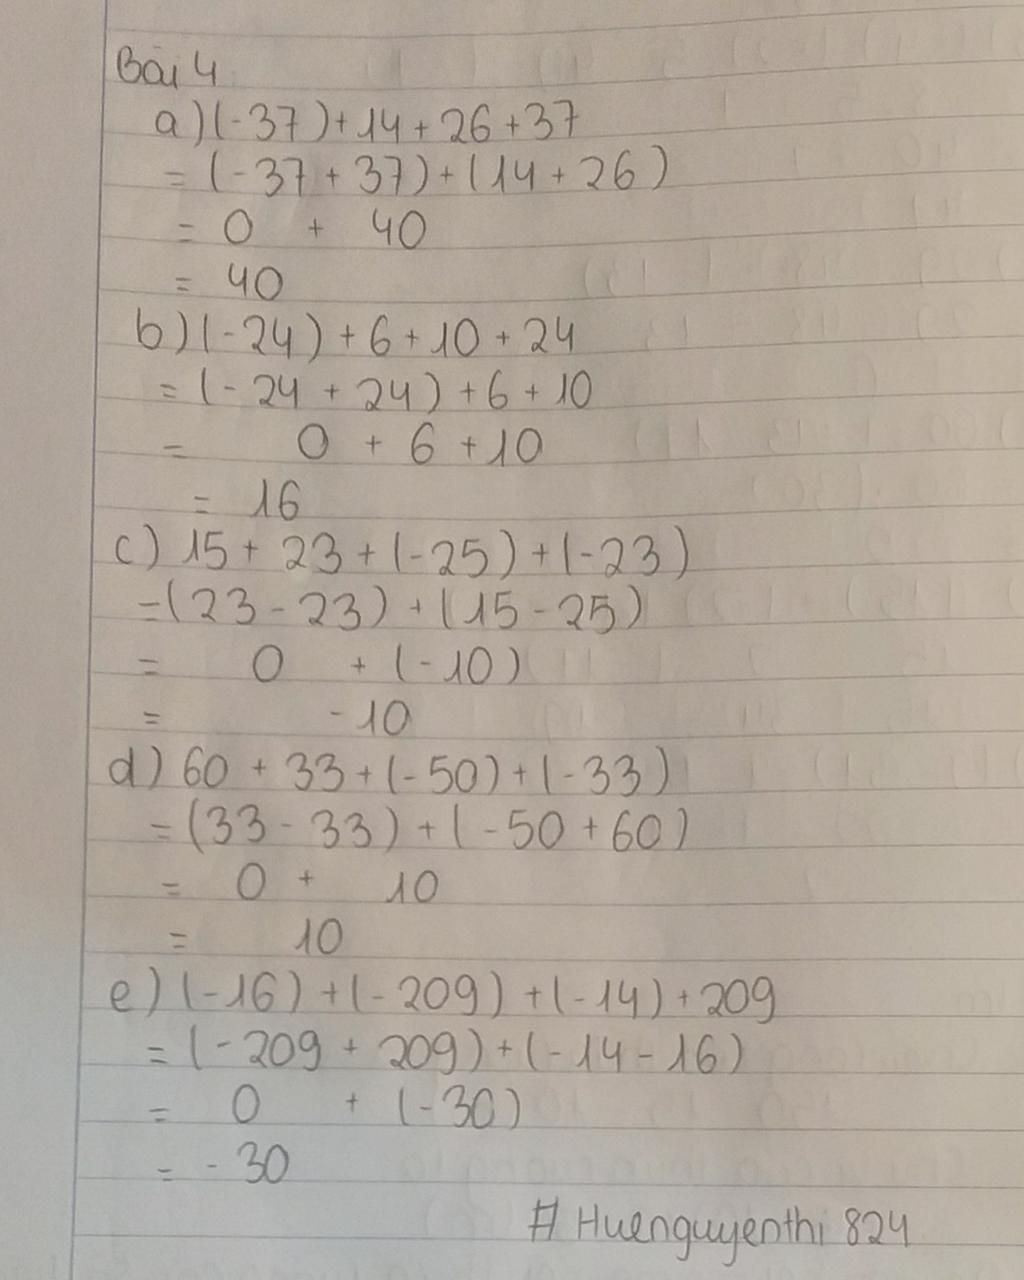 Bài 4
a) (-37) + 14 + 26 + 37
= (-37 + 37) + (14 + 26)
= 0 + 40
= 40
b) (-24) + 6 + 10 + 24
= (-24 + 24) + 6 + 10
= 0 + 6 + 10
= 16
c) 15 + 23 + (-25) + (-23)
= (23 - 23) + (15 - 25)
= 0 + (-10)
= -10
d) 60 + 33 + (-50) + (-33)
= (33 - 33) + (-50 + 60)
= 0 + 10
= 10
e) (-16) + (-209) + (-14) + 209
= (-209 + 209) + (-14 - 16)
= 0 + (-30)
= -30
# Huenguyenthi 824